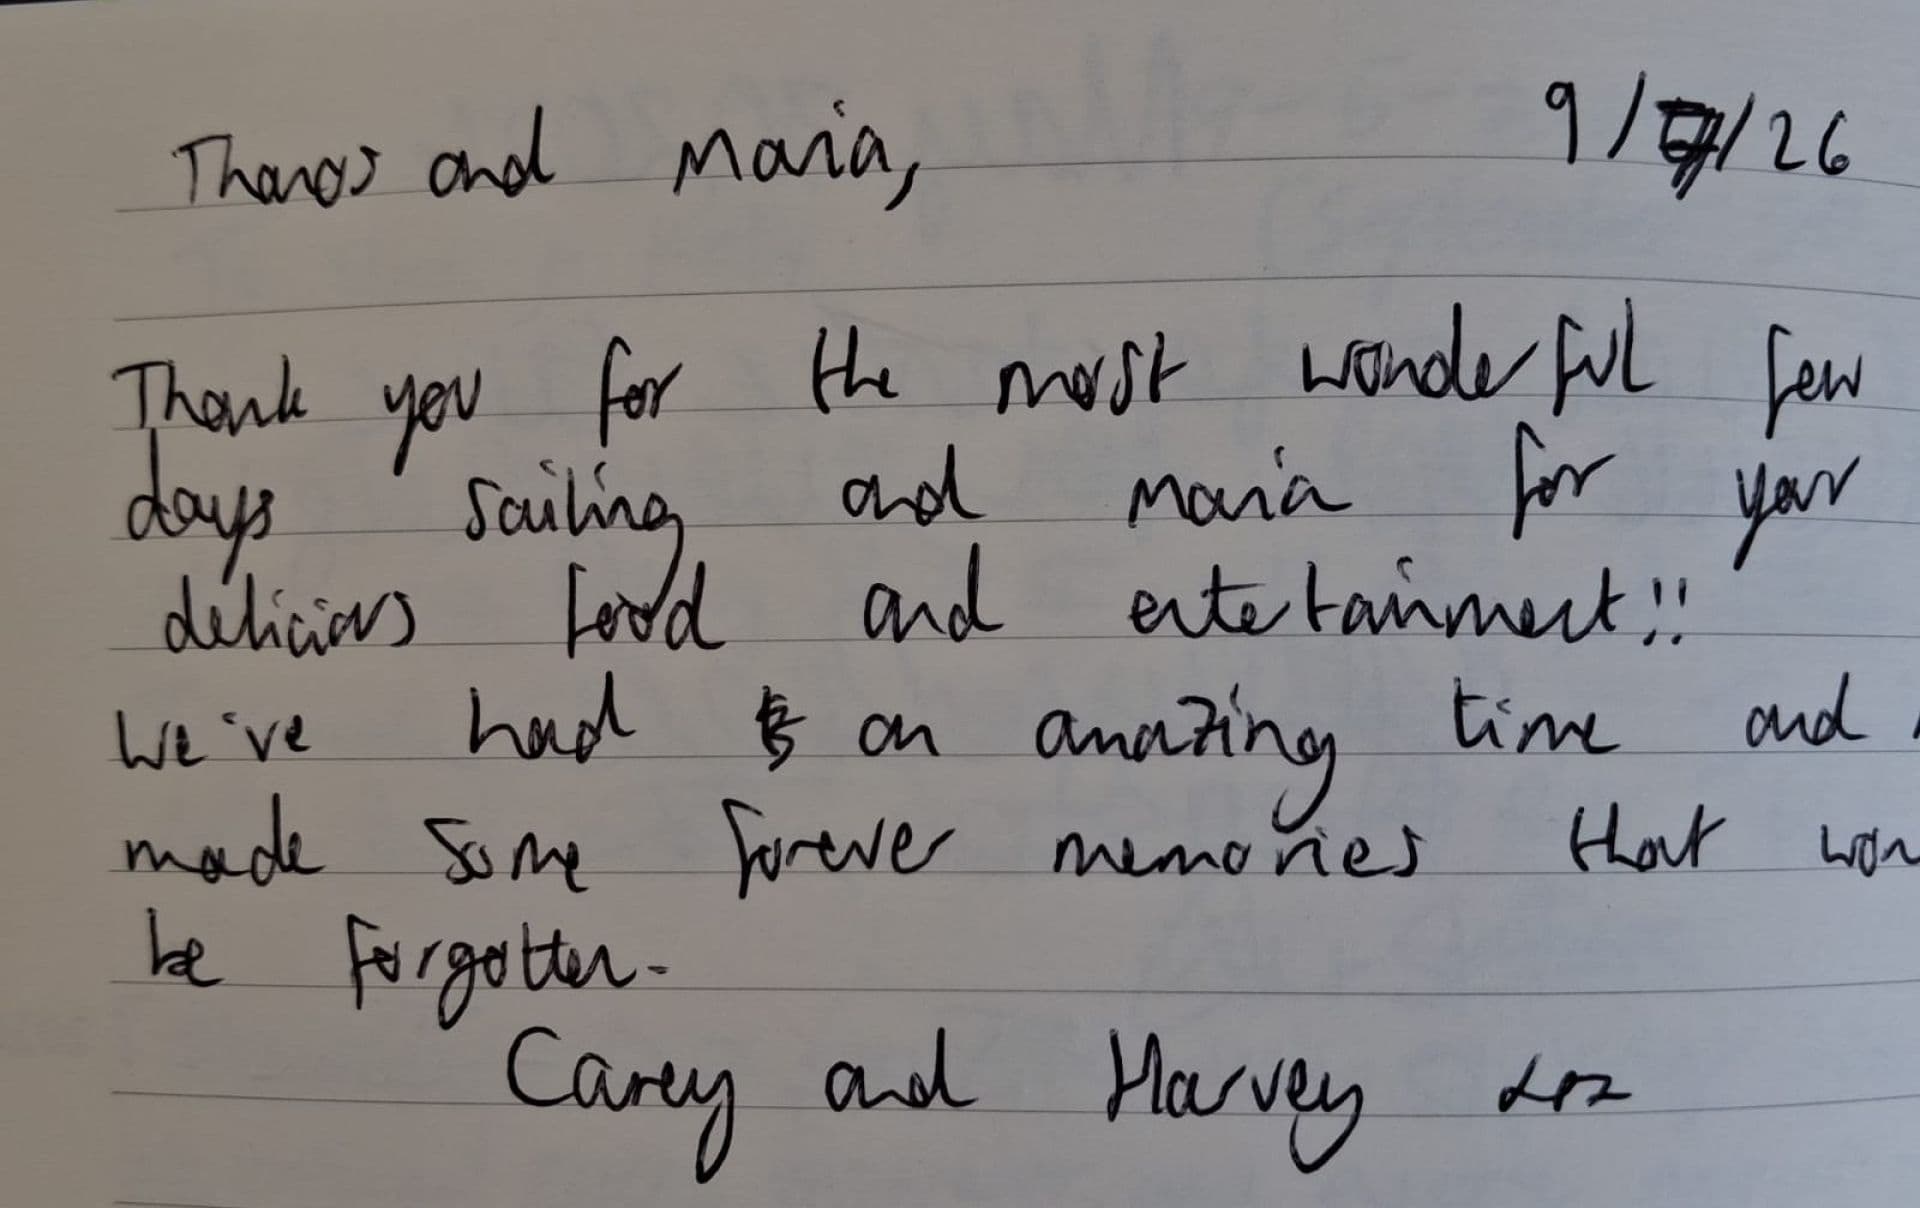 Thanos and Maria, 9/7/26
Thank you for the most wonderful few
days sailing and Maria for your
delicious food and entertainment!!
We've had an amazing time and
made some forever memories that won
be forgotten.
Carey and Harvey